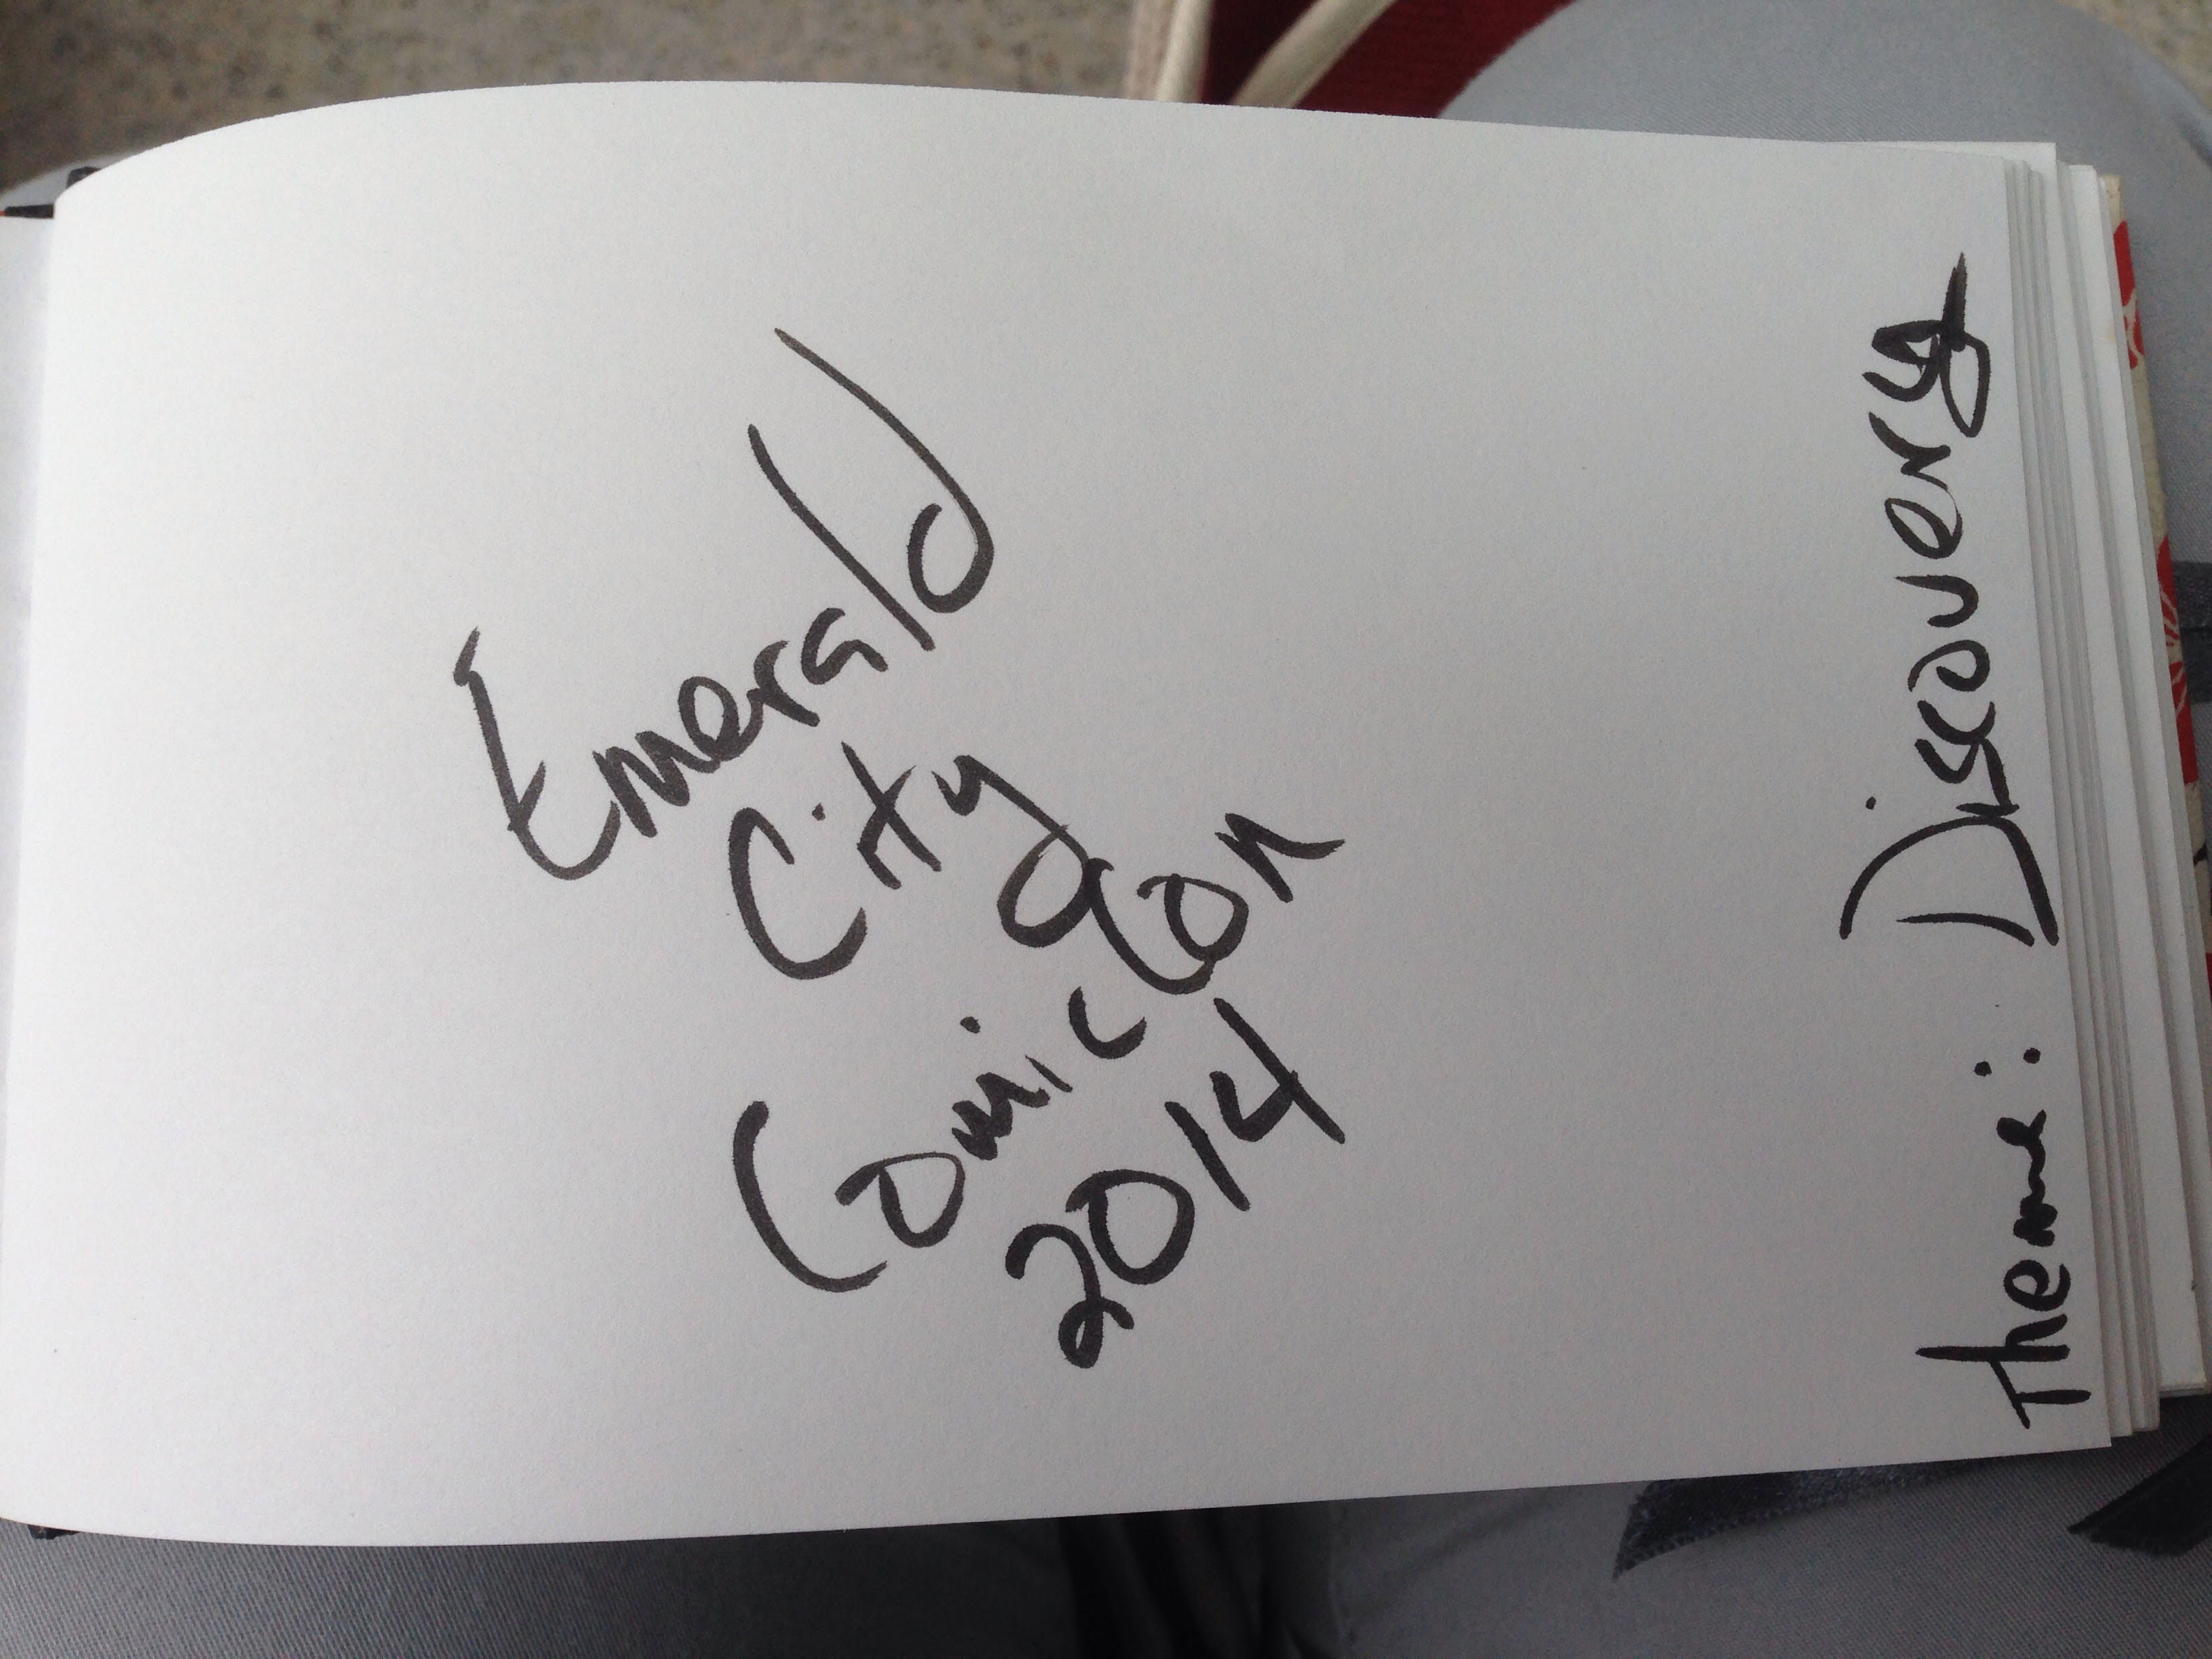 Emerald
City
Comic Con
2014
Theme: Discovery